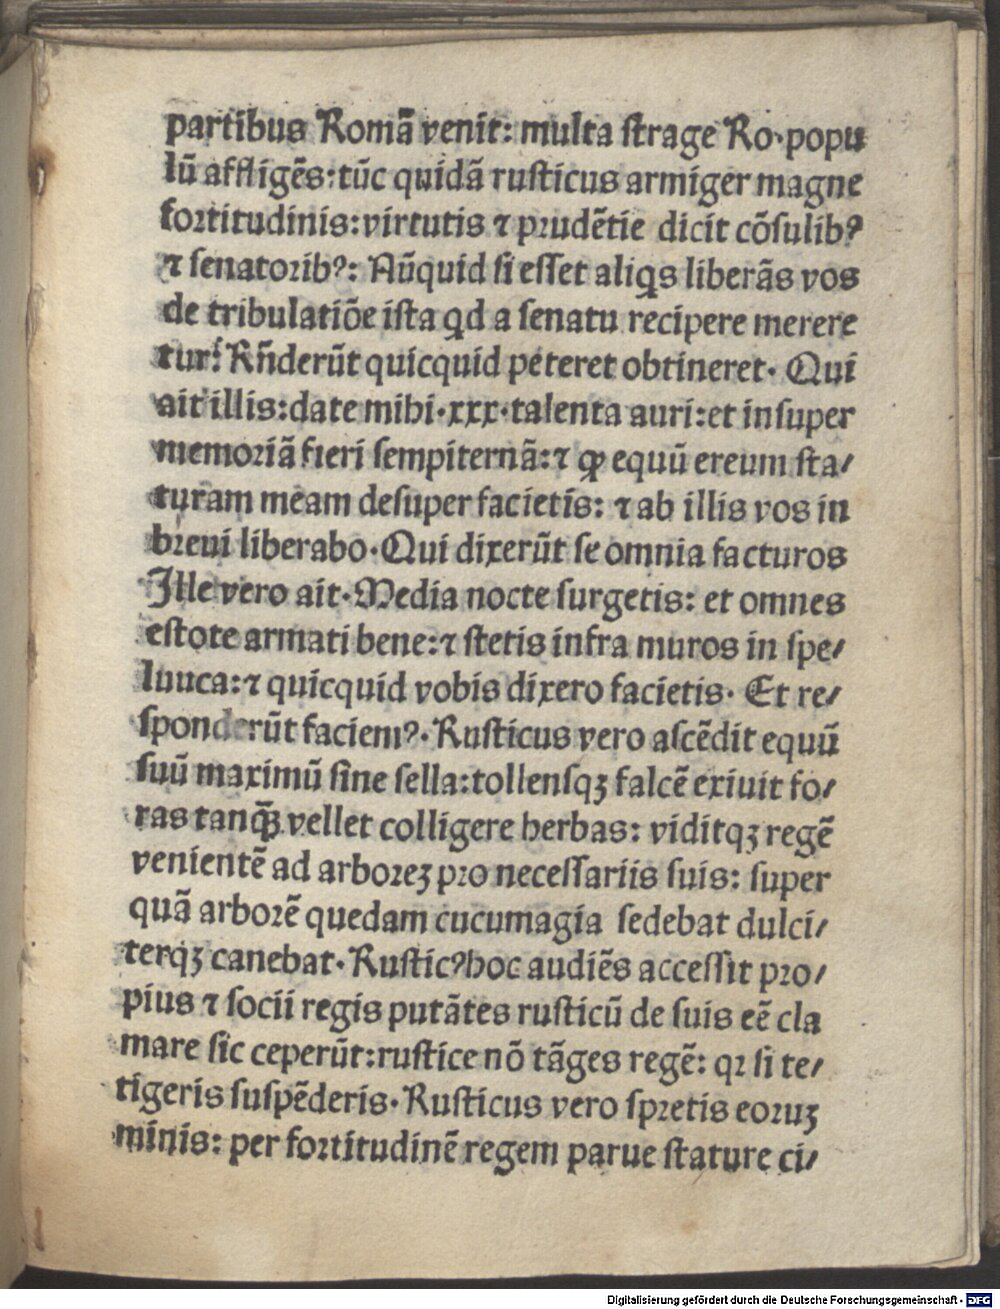 partibus Romā venit: multa strage Ro·popu
lū affligēs:tūc quidā rusticus armiger magne
fortitudinis:virtutis ⁊ prudētie dicit cōsulibꝰ
⁊ senatoribꝰ: Nūquid si esset aliqs liberās vos
de tribulatiōe ista qd a senatu recipere merere
tur: Rñderūt quicquid peteret obtineret· Qui
ait illis:date mihi·xxx·talenta auri:et insuper
memoriā fieri sempiternā:⁊ ꝙ equū ereum sta/
turam meam desuper facietis: ⁊ ab illis vos in
breui liberabo·Qui dixerūt se omnia facturos
Ille vero ait·Media nocte surgetis: et omnes
estote armati bene:⁊ stetis infra muros in spe/
lunca:⁊ quicquid vobis dixero facietis· Et re/
sponderūt faciemꝰ·Rusticus vero ascēdit equū
suū maximū sine sella:tollensqꝫ falcē exiuit fo/
ras tanꝙ̄ vellet colligere herbas: viditqꝫ regē
venientē ad arboreꝫ pro necessariis suis: super
quā arborē quedam cucumagia sedebat dulci/
terqꝫ canebat·Rusticꝰhoc audiēs accessit pro/
pius ⁊ socii regis putātes rusticū de suis eē cla
mare sic ceperūt:rustice nō tāges regē: qꝛ si te/
tigeris suspēderis·Rusticus vero spretis eoruꝫ
minis: per fortitudinē regem parue stature ci/
Digitalisierung gefördert durch die Deutsche Forschungsgemeinschaft - DFG